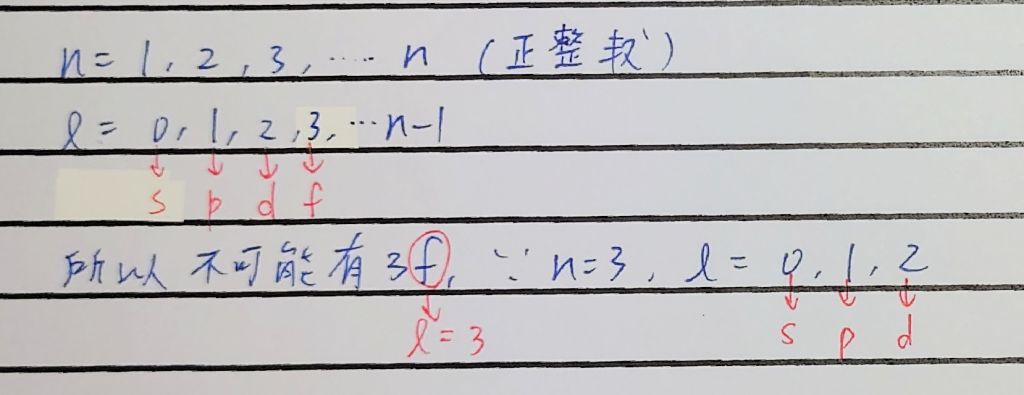 n = 1, 2, 3, ..... n (正整数)
l = 0, 1, 2, 3, ... n-1
↓ ↓ ↓ ↓
s p d f
所以 不可能有 3f, ∵ n=3, l = 0, 1, 2
↓ ↓ ↓ ↓
l = 3 s p d